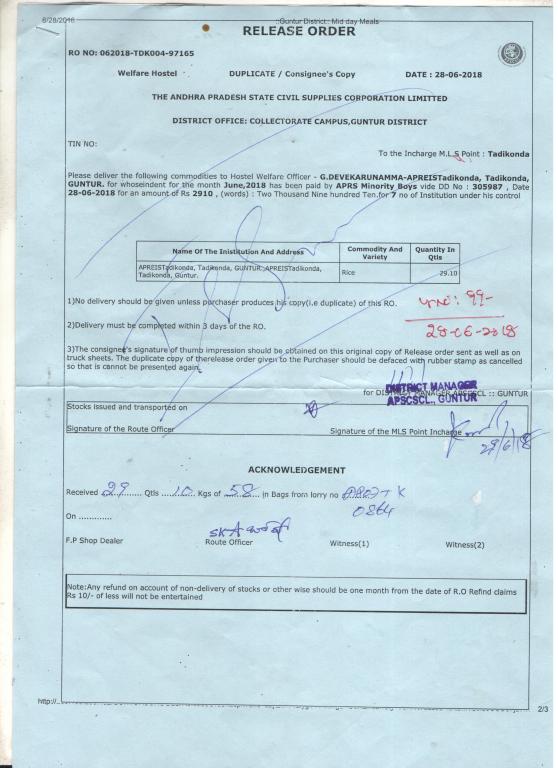 6/28/2016
::Guntur District:: Mid day Meals
RELEASE ORDER
RO NO: 062018-TDK004-97165
Welfare Hostel DUPLICATE / Consignee's Copy DATE : 28-06-2018
THE ANDHRA PRADESH STATE CIVIL SUPPLIES CORPORATION LIMITTED
DISTRICT OFFICE: COLLECTORATE CAMPUS,GUNTUR DISTRICT
TIN NO:
To the Incharge M.L.S Point : Tadikonda
Please deliver the following commodities to Hostel Welfare Officer - G.DEVEKARUNAMMA-APREISTadikonda, Tadikonda,
GUNTUR. for whoseindent for the month June,2018 has been paid by APRS Minority Boys vide DD No : 305987 , Date
28-06-2018 for an amount of Rs 2910 , (words) : Two Thousand Nine hundred Ten.for 7 no of Institution under his control
Name Of The Inistitution And Address Commodity And Variety Quantity In Qtls
APREISTadikonda, Tadikonda, GUNTUR.:APREISTadikonda,
Tadikonda, Guntur. Rice 29.10
1)No delivery should be given unless purchaser produces his copy(i.e duplicate) of this RO.
99-
28-06-2018
2)Delivery must be completed within 3 days of the RO.
3)The consignee's signature of thumb impression should be obtained on this original copy of Release order sent as well as on
truck sheets. The duplicate copy of therelease order given to the Purchaser should be defaced with rubber stamp as cancelled
so that is cannot be presented again.
for DISTRICT MANAGER APSCSCL :: GUNTUR
DISTRICT MANAGER
APSCSCL., GUNTUR
Stocks issued and transported on
Signature of the Route Officer Signature of the MLS Point Incharge
29/6/18
ACKNOWLEDGEMENT
Received 29 Qtls 10 Kgs of 58 in Bags from lorry no
0864
On ............
F.P Shop Dealer Route Officer Witness(1) Witness(2)
Note:Any refund on account of non-delivery of stocks or other wise should be one month from the date of R.O Refind claims
Rs 10/- of less will not be entertained
http://
2/3